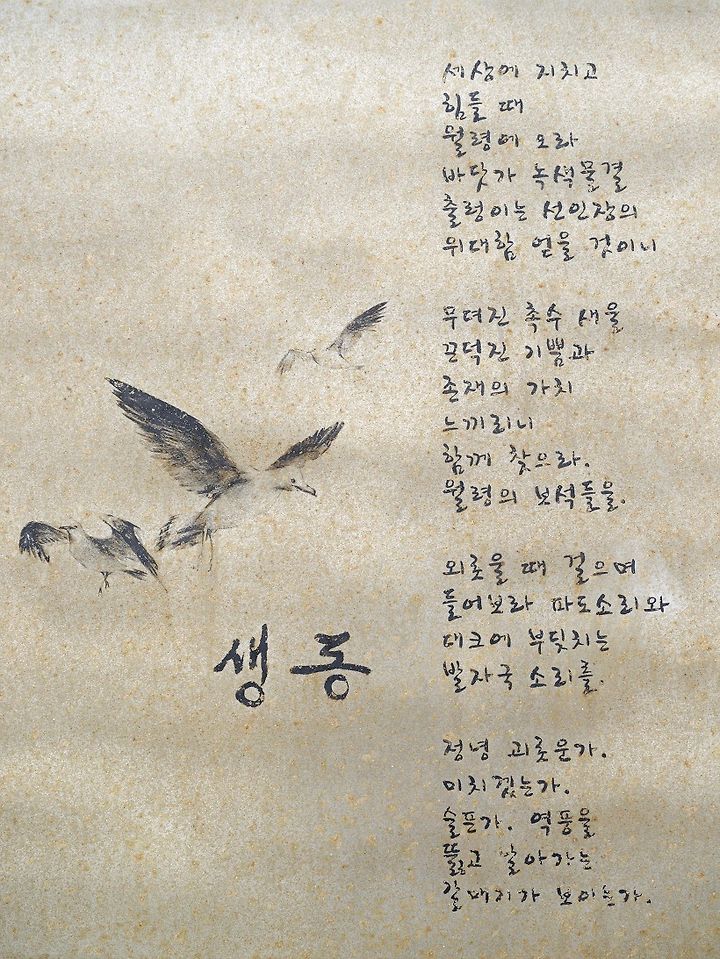 생동
세상에 지치고
힘들 때
월령에 오라
바닷가 녹색물결
출렁이는 선인장의
위대함 얻을 것이니
무뎌진 촉수 세울
끈덕진 기쁨과
존재의 가치
느끼리니
함께 찾으라.
월령의 보석들을.
외로울 때 걸으며
들어보라 파도소리와
데크에 부딪치는
발자국 소리를.
정녕 괴로운가.
미치겠는가.
슬픈가. 역풍을
뚫고 날아가는
갈매기가 보이는가.